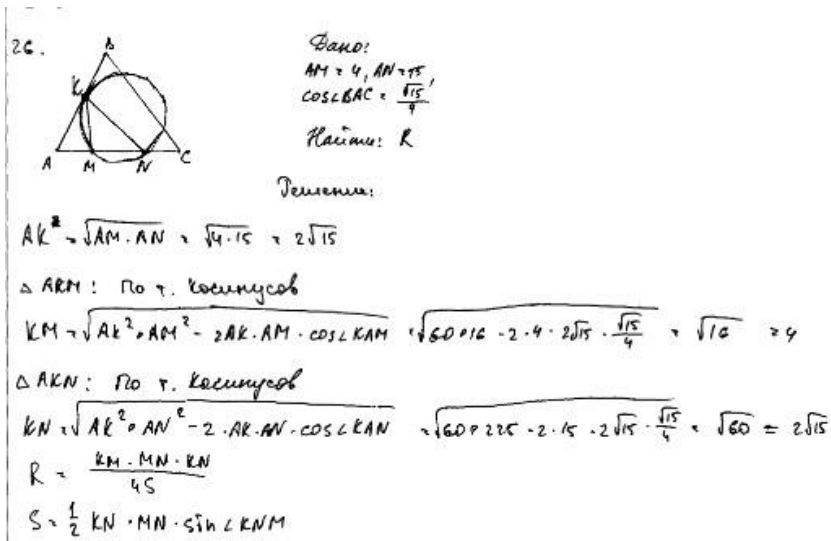 26.
B
K
A M N C
Дано:
AM = 4, AN = 15,
cos∠BAC = √15/4
Найти: R
Решение:
AK = √(AM · AN) = √(4·15) = 2√15
△ AKM: По т. Косинусов
KM = √(AK² + AM² - 2AK · AM · cos∠KAM) = √(60+16 - 2 · 4 · 2√15 · √15/4) = √16 = 4
△ AKN: По т. Косинусов
KN = √(AK² + AN² - 2 · AK · AN · cos∠KAN) = √(60+225 - 2 · 15 · 2√15 · √15/4) = √60 = 2√15
R = (KM · MN · KN)/4S
S = 1/2 KN · MN · sin∠KNM